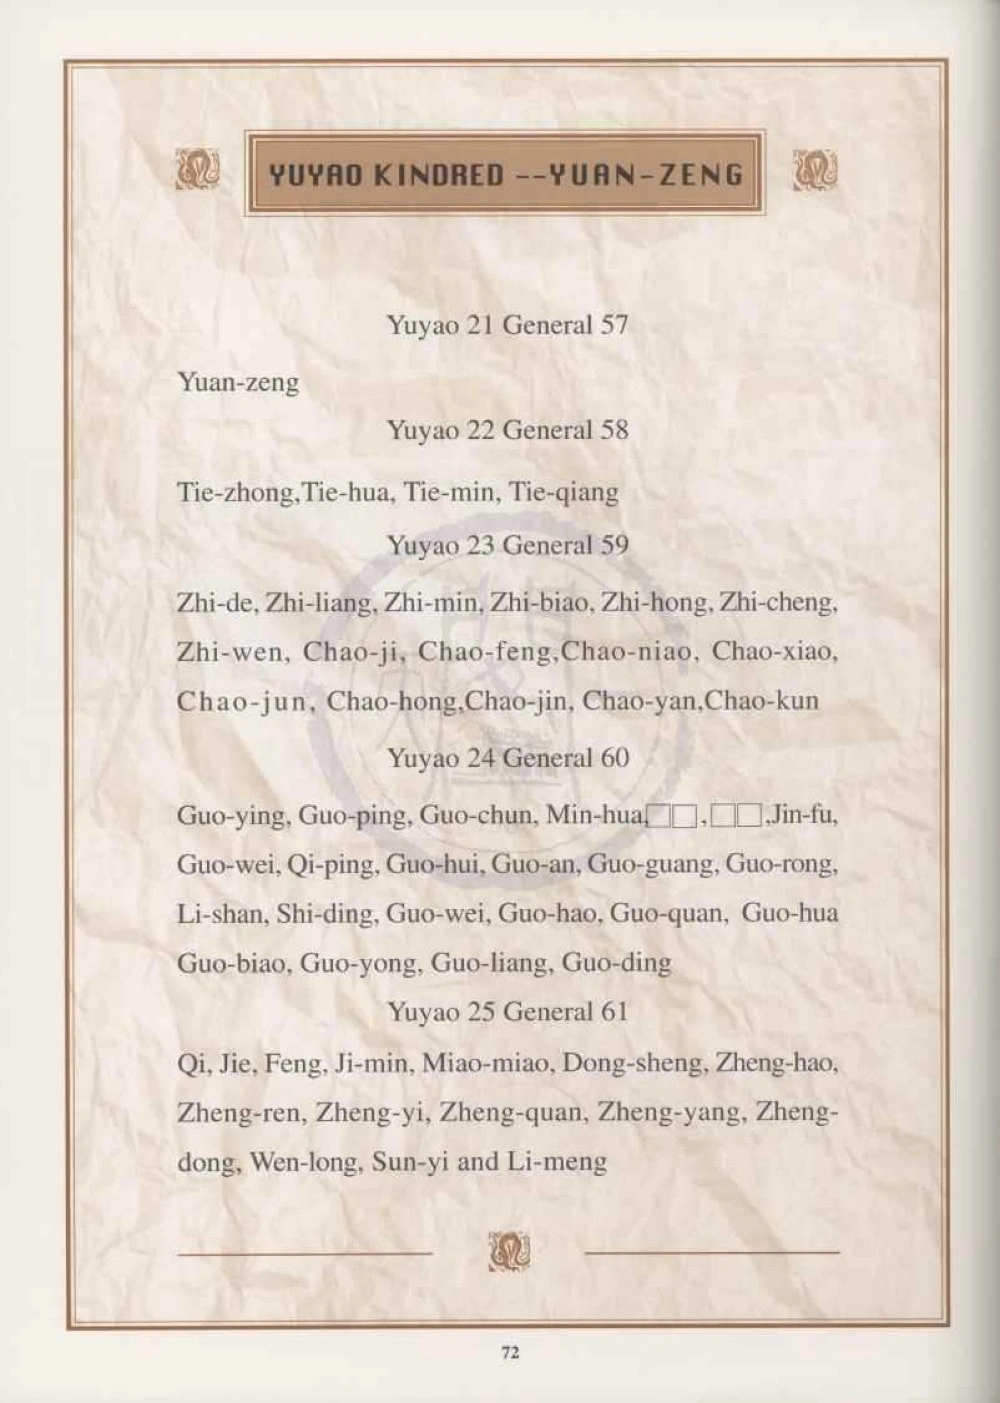 YUYAO KINDRED --YUAN-ZENG
Yuyao 21 General 57
Yuan-zeng
Yuyao 22 General 58
Tie-zhong,Tie-hua, Tie-min, Tie-qiang
Yuyao 23 General 59
Zhi-de, Zhi-liang, Zhi-min, Zhi-biao, Zhi-hong, Zhi-cheng,
Zhi-wen, Chao-ji, Chao-feng,Chao-niao, Chao-xiao,
Chao-jun, Chao-hong,Chao-jin, Chao-yan,Chao-kun
Yuyao 24 General 60
Guo-ying, Guo-ping, Guo-chun, Min-hua,□□,□□,Jin-fu,
Guo-wei, Qi-ping, Guo-hui, Guo-an, Guo-guang, Guo-rong,
Li-shan, Shi-ding, Guo-wei, Guo-hao, Guo-quan, Guo-hua
Guo-biao, Guo-yong, Guo-liang, Guo-ding
Yuyao 25 General 61
Qi, Jie, Feng, Ji-min, Miao-miao, Dong-sheng, Zheng-hao,
Zheng-ren, Zheng-yi, Zheng-quan, Zheng-yang, Zheng-
dong, Wen-long, Sun-yi and Li-meng
72